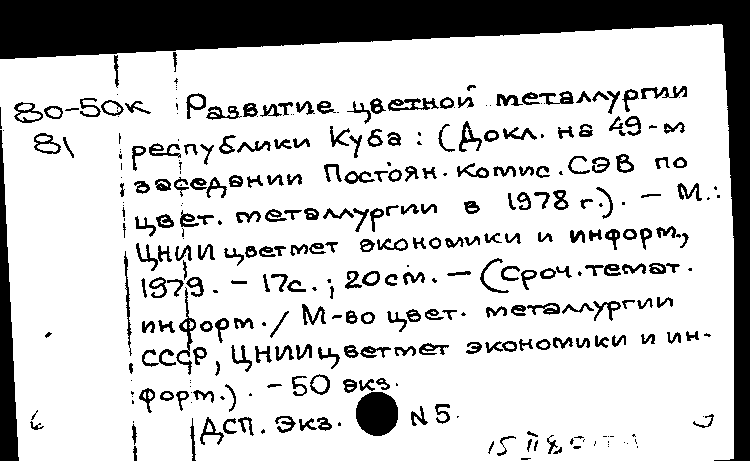 80-50к Развитие цветной металлургии
81 республики Куба : (Докл. на 49-м
заседании Постоян. Комис. СЭВ по
цвет. металлургии в 1978 г.). – М.:
ЦНИИцветмет экономики и информ.,
1979. – 17с. ; 20см. – (Сроч. темат.
информ. / М-во цвет. металлургии
СССР, ЦНИИцветмет экономики и ин-
форм.). – 50 экз.
ДСП. Экз. N 5.
15 II 80